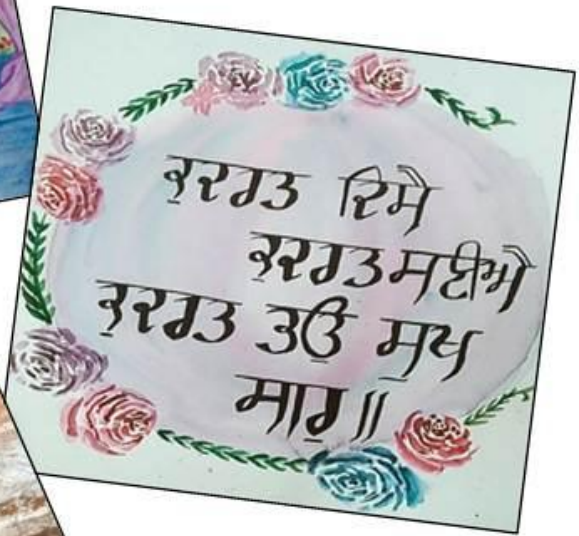 ਕੁਦਰਤ ਦਿਸੈ
ਕੁਦਰਤ ਸਣੀਐ
ਕੁਦਰਤ ਤਉ ਸੁਖ
ਸਾਰੁ॥